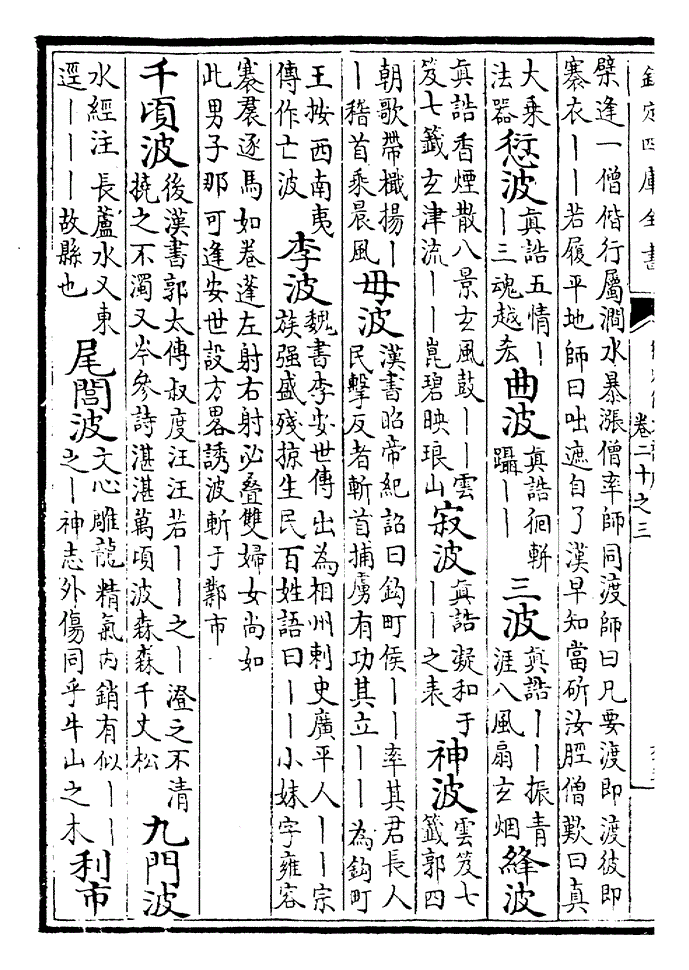 欽定四庫全書
卷二十之三
檗逢一僧偕行屬澗水暴漲僧率師同渡師曰凡要渡即渡彼即
褰衣丨丨若履平地師曰咄遮自了漢早知當斫汝脛僧歎曰真
大乘
法器
愆波
真誥五情丨
丨三魂越
曲波
真誥徊軿
躡丨丨
三波
真誥丨丨振青
涯八風扇玄烟
絳波
真誥香煙散八景玄風鼓丨丨雲
笈七籤玄津流丨丨崑碧映琅山
寂波
真誥凝和于
丨丨之表
神波
雲笈七
籤郭四
朝歌帶檝揚丨
丨稽首乘晨風
毋波
漢書昭帝紀詔曰鈎町侯丨丨率其君長人
民擊反者斬首捕虜有功其立丨丨為鈎町
王按西南夷
傳作亡波
李波
魏書李安世傳出為相州刺史廣平人丨丨宗
族强盛殘掠生民百姓語曰丨丨小妹字雍容
褰裠逐馬如卷蓬左射右射必叠雙婦女尚如
此男子那可逢安世設方畧誘波斬于鄴市
千頃波
後漢書郭太傳叔度汪汪若丨丨之丨澄之不清
撓之不濁又岑參詩湛湛萬頃波森森千丈松
九門波
水經注長蘆水又東
逕丨丨丨故縣也
尾閭波
文心雕龍精氣内銷有似丨丨
之丨神志外傷同乎牛山之木
利市